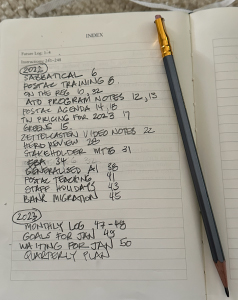 INDEX
Future Log: 1-4
2022
SABBATICAL 6
POSTAC TRAINING 8
ON THE REG 10, 32
ATD PROGRAM NOTES 12, 13
POSTAC AGENDA 14, 18
TW PRICING FOR 2023 17
GREENS 15
ZETTELKASTEN VIDEO NOTES 22
HERO REVIEW 28
STAKEHOLDER MTB 31
34
GENERALISED AI 38
POSTAC TEACHING 41
STAFF HOLIDAYS 43
BANK MIGRATION 45
2023
MONTHLY LOG 47-48
GOALS FOR JAN 49
WAITING FOR JAN 50
QUARTERLY PLAN